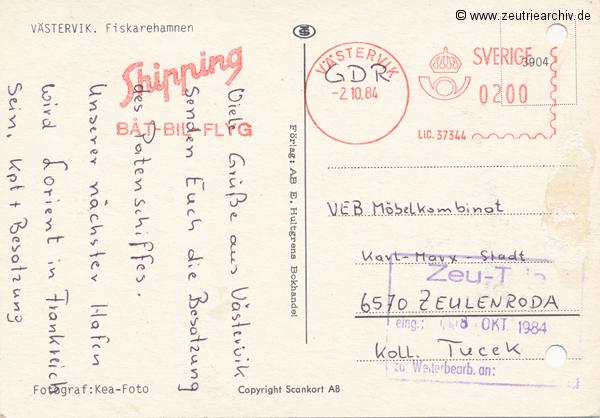 © www.zeutriearchiv.de
VÄSTERVIK. Fiskarehamnen
Shipping
BÅT-BIL-FLYG
Viele Grüße aus Västervik
senden Euch die Besatzung
des Patenschiffes.
Unserer nächster Hafen
wird Lorient in Frankreich
sein. Kpt + Besatzung
Fotograf:Kea-Foto
Förlag: AB E. Hultgrens Bokhandel
Copyright Scankort AB
VÄSTERVIK
-2.10.84
GDR
SVERIGE
3904
0200
LIC. 37344
VEB Möbelkombinat
Karl-Marx-Stadt
6570 ZEULENRODA
Koll. Tucek
eing.: 8. OKT. 1984
zu Weiterbearb. an: